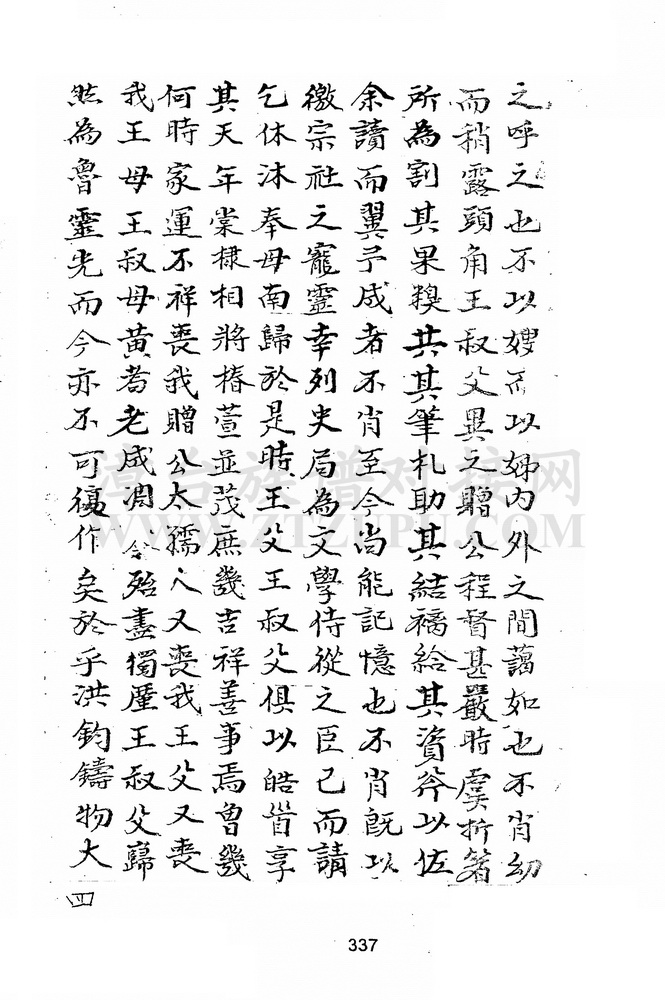 之呼之也不以嫂而以姊内外之間藹如也不肖幼
而稍露頭角王叔父異之贈公程督甚嚴時虞折箸
所為割其果糗共其筆札助其結褵給其資斧以佐
余讀而翼予成者不肖至今尚能記憶也不肖既以
徼宗社之寵靈幸列史局為文學侍從之臣已而請
乞休沐奉母南歸於是時王父王叔父俱以皓首享
其天年棠棣相將椿萱並茂庶幾吉祥善事焉曾幾
何時家運不祥喪我贈公太孺人又喪我王父又喪
我王母王叔母黄耇老成凋令殆盡獨歷王叔父巋
然為魯靈光而今亦不可復作矣於乎洪鈞鑄物大
四
337
漳台族譜对接网
WWW.ZTZUPU.COM